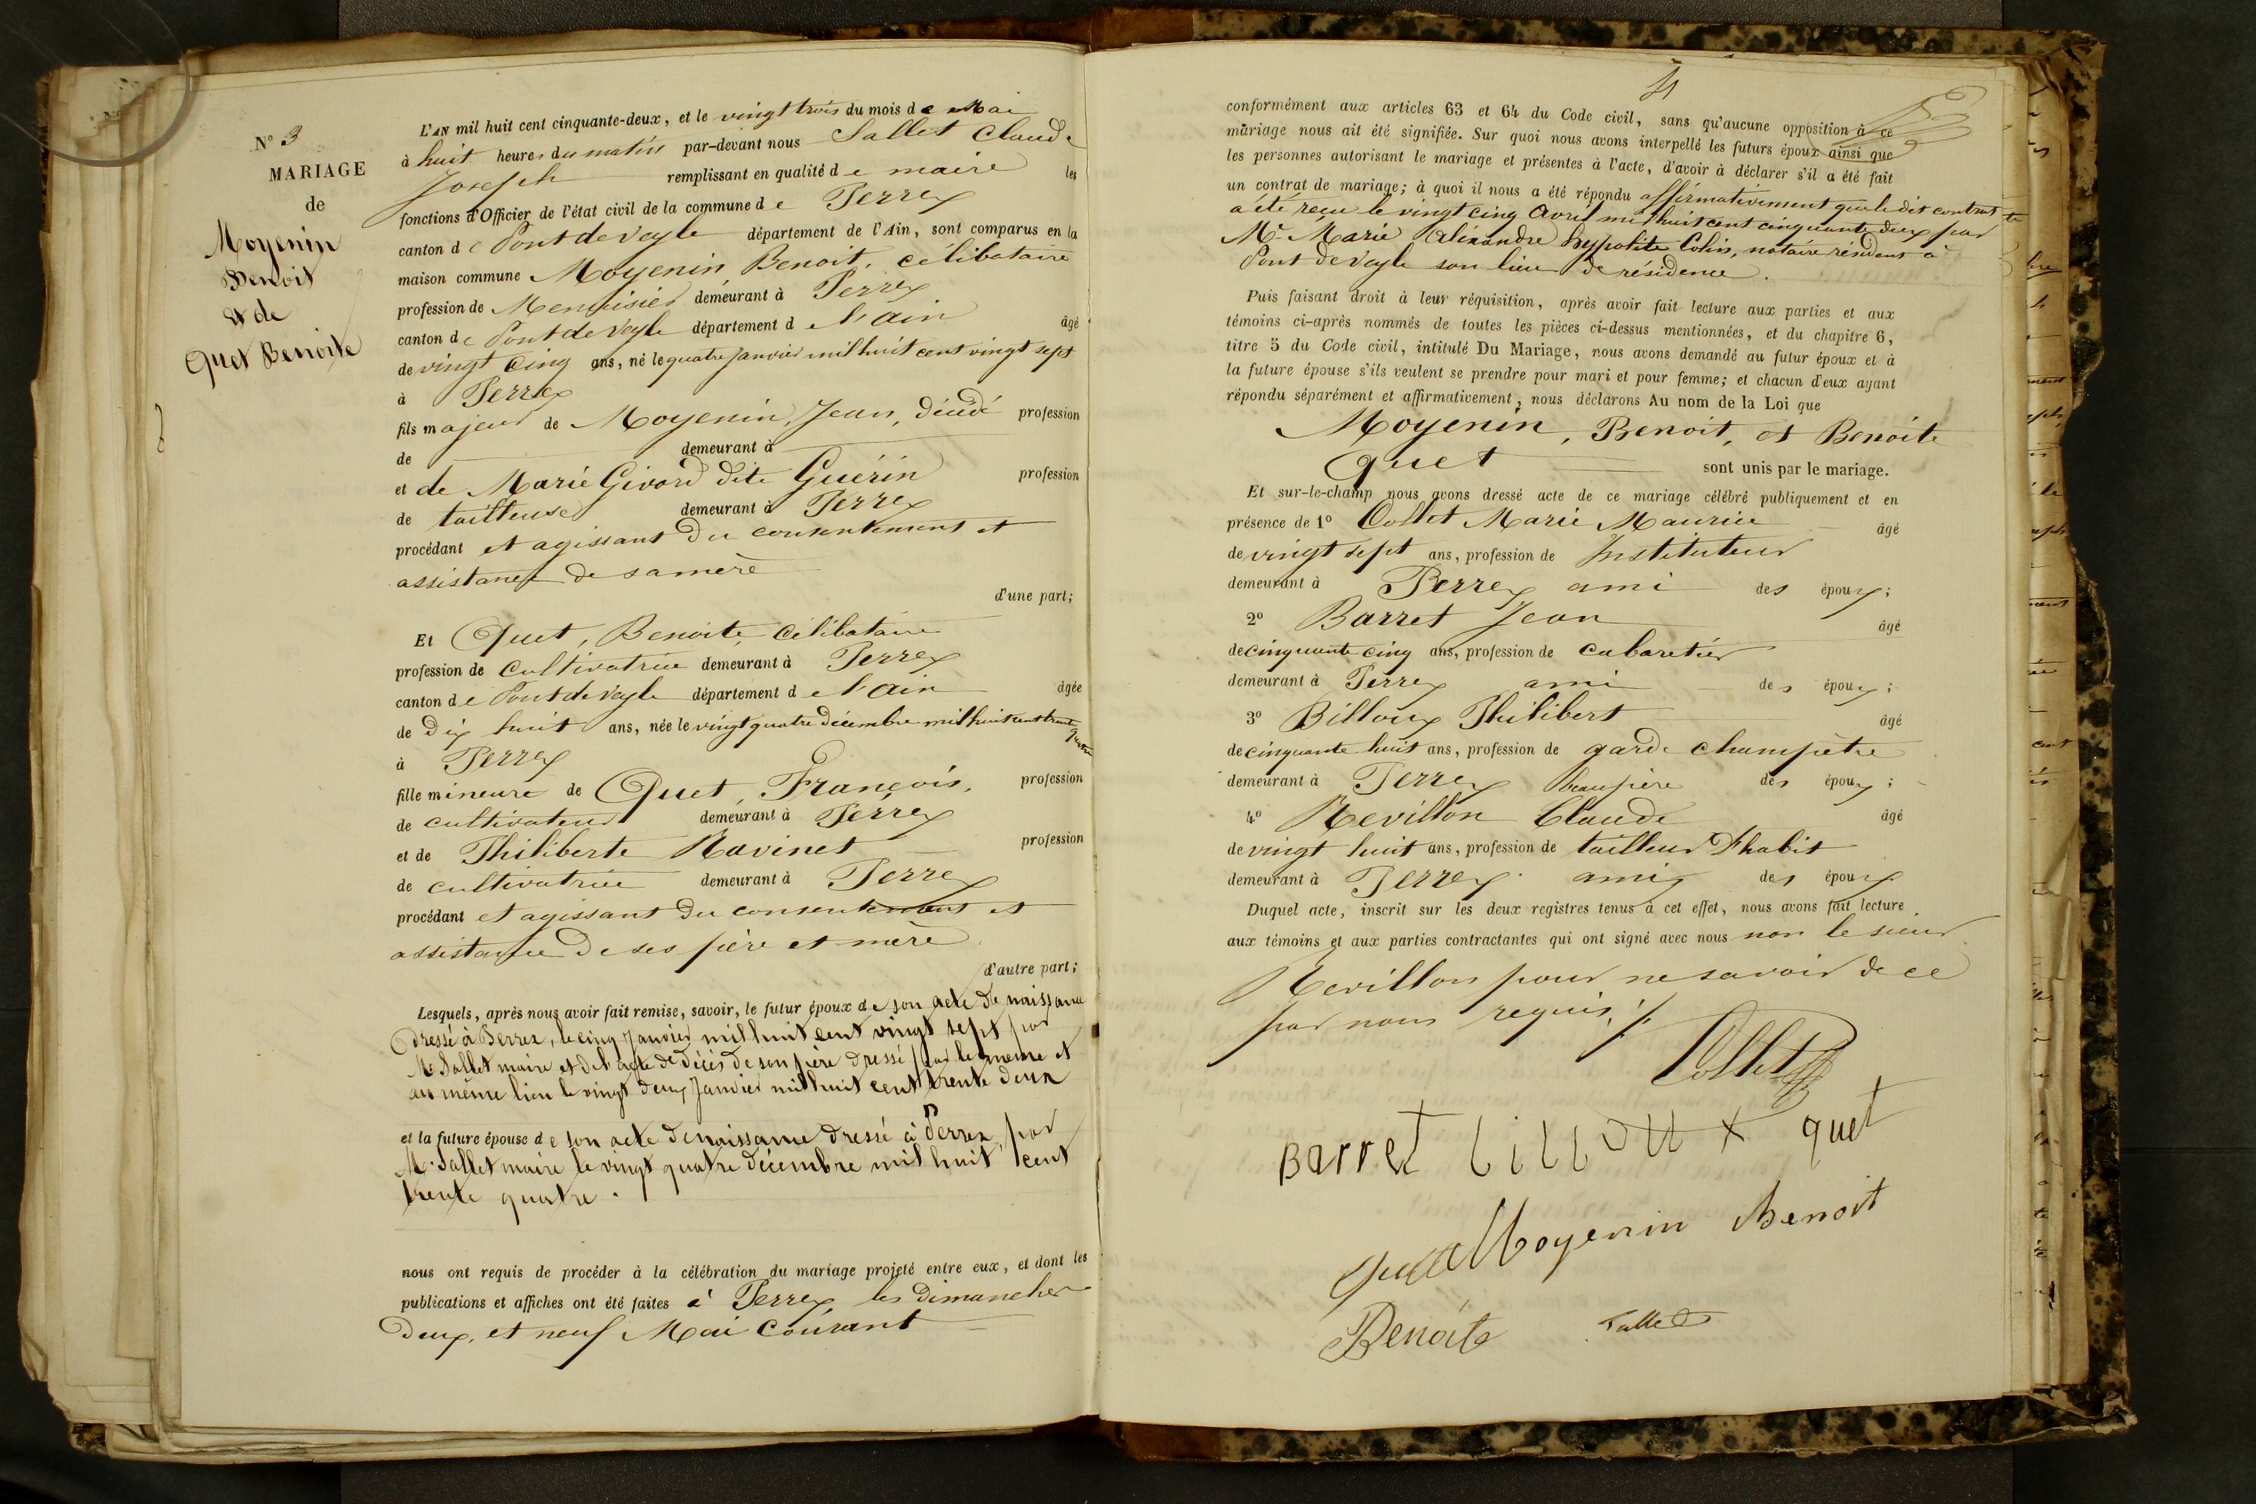 N° 3
MARIAGE
de
Moyenin
Benoit
et de
Quet Benoite
L'AN mil huit cent cinquante-deux, et le vingt trois du mois de Mai
à huit heures du matin par-devant nous Sallet Claude
Joseph remplissant en qualité de maire les
fonctions d'Officier de l'état civil de la commune de Perrex
canton de Pont de Veyle département de l'Ain, sont comparus en la
maison commune Moyenin Benoit, célibataire
profession de Menuisier demeurant à Perrex
canton de Pont de Veyle département de l'ain âgé
de vingt cinq ans, né le quatre janvier mil huit cent vingt sept
à Perrex
fils majeur de Moyenin, Jean, décédé profession
de demeurant à
et de Marie Givord dite Guérin profession
de tailleuse demeurant à Perrex
procédant et agissant du consentement et
assistance de sa mère
d'une part;
Et Quet, Benoite, célibataire
profession de cultivatrice demeurant à Perrex
canton de Pont de Veyle département de l'ain âgée
de dix huit ans, née le vingt quatre décembre mil huit cent trente quatre
à Perrex
fille mineure de Quet, François, profession
de cultivateur demeurant à Perrex
et de Philiberte Ravinet profession
de cultivatrice demeurant à Perrex
procédant et agissant du consentement et
assistance de ses père et mère
d'autre part;
Lesquels, après nous avoir fait remise, savoir, le futur époux de son acte de naissance
dressé à Perrex, le cinq Janvier mil huit cent vingt sept par
Mr Sallet maire et de l'acte de décès de son père dressé par le même et
au même lieu le vingt deux Janvier mil huit cent trente deux
et la future épouse de son acte de naissance dressé à Perrex, par
Mr Sallet maire le vingt quatre décembre mil huit cent
trente quatre.
nous ont requis de procéder à la célébration du mariage projeté entre eux, et dont les
publications et affiches ont été faites à Perrex, les dimanches
deux, et neuf Mai courant
4
conformément aux articles 63 et 64 du Code civil, sans qu'aucune opposition à ce
mariage nous ait été signifiée. Sur quoi nous avons interpellé les futurs époux ainsi que
les personnes autorisant le mariage et présentes à l'acte, d'avoir à déclarer s'il a été fait
un contrat de mariage; à quoi il nous a été répondu affirmativement que le dit contrat
a été reçu le vingt cinq Avril mil huit cent cinquante deux par
Mr Marie Alexandre hypolite Colin, notaire résidant à
Pont de Veyle son lieu de résidence.
Puis faisant droit à leur réquisition, après avoir fait lecture aux parties et aux
témoins ci-après nommés de toutes les pièces ci-dessus mentionnées, et du chapitre 6,
titre 5 du Code civil, intitulé Du Mariage, nous avons demandé au futur époux et à
la future épouse s'ils veulent se prendre pour mari et pour femme; et chacun d'eux ayant
répondu séparément et affirmativement, nous déclarons Au nom de la Loi que
Moyenin, Benoit, et Benoite
Quet sont unis par le mariage.
Et sur-le-champ nous avons dressé acte de ce mariage célébré publiquement et en
présence de 1° Collet Marie Maurice âgé
de vingt sept ans, profession de Instituteur
demeurant à Perrex ami des époux;
2° Barret Jean âgé
de cinquante cinq ans, profession de cabaretier
demeurant à Perrex ami des époux;
3° Billoux Philibert âgé
de cinquante huit ans, profession de garde champêtre
demeurant à Perrex beaupère des époux;
4° Revillon Claude âgé
de vingt huit ans, profession de tailleur d'habit
demeurant à Perrex amis des époux
Duquel acte, inscrit sur les deux registres tenus à cet effet, nous avons fait lecture
aux témoins et aux parties contractantes qui ont signé avec nous non le sieur
Revillon pour ne savoir de ce
par nous requis ./.
Collet
Barret billoux quet
Quet Moyenin Benoit
Benoite Sallet